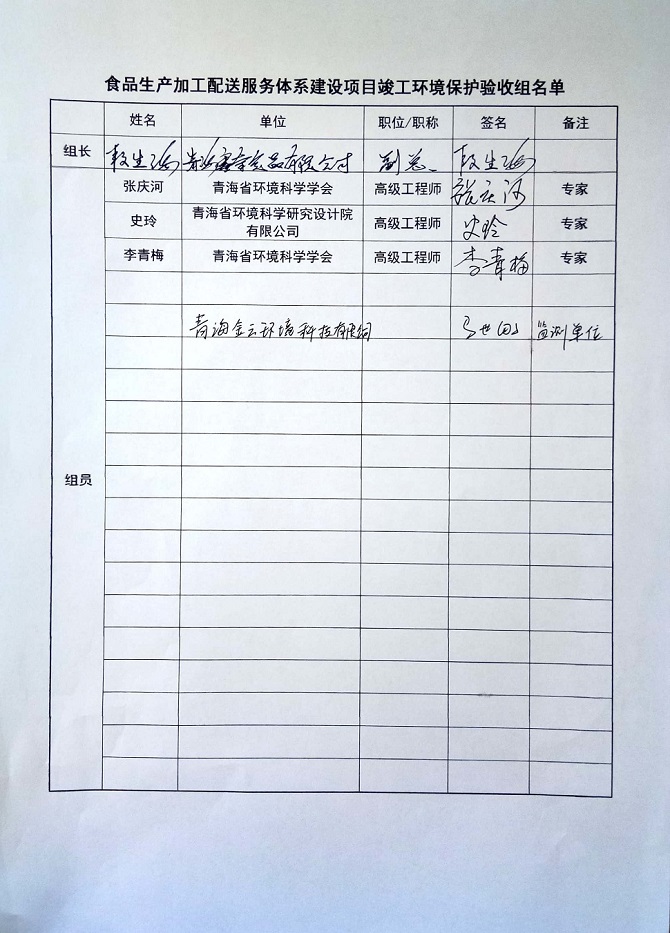 食品生产加工配送服务体系建设项目竣工环境保护验收组名单
姓名 单位 职位/职称 签名 备注
组长 副总
张庆河 青海省环境科学学会 高级工程师 张庆河 专家
史玲 青海省环境科学研究设计院
有限公司 高级工程师 史玲 专家
李青梅 青海省环境科学学会 高级工程师 李青梅 专家
青海金云环境科技有限公司 监测单位
组员